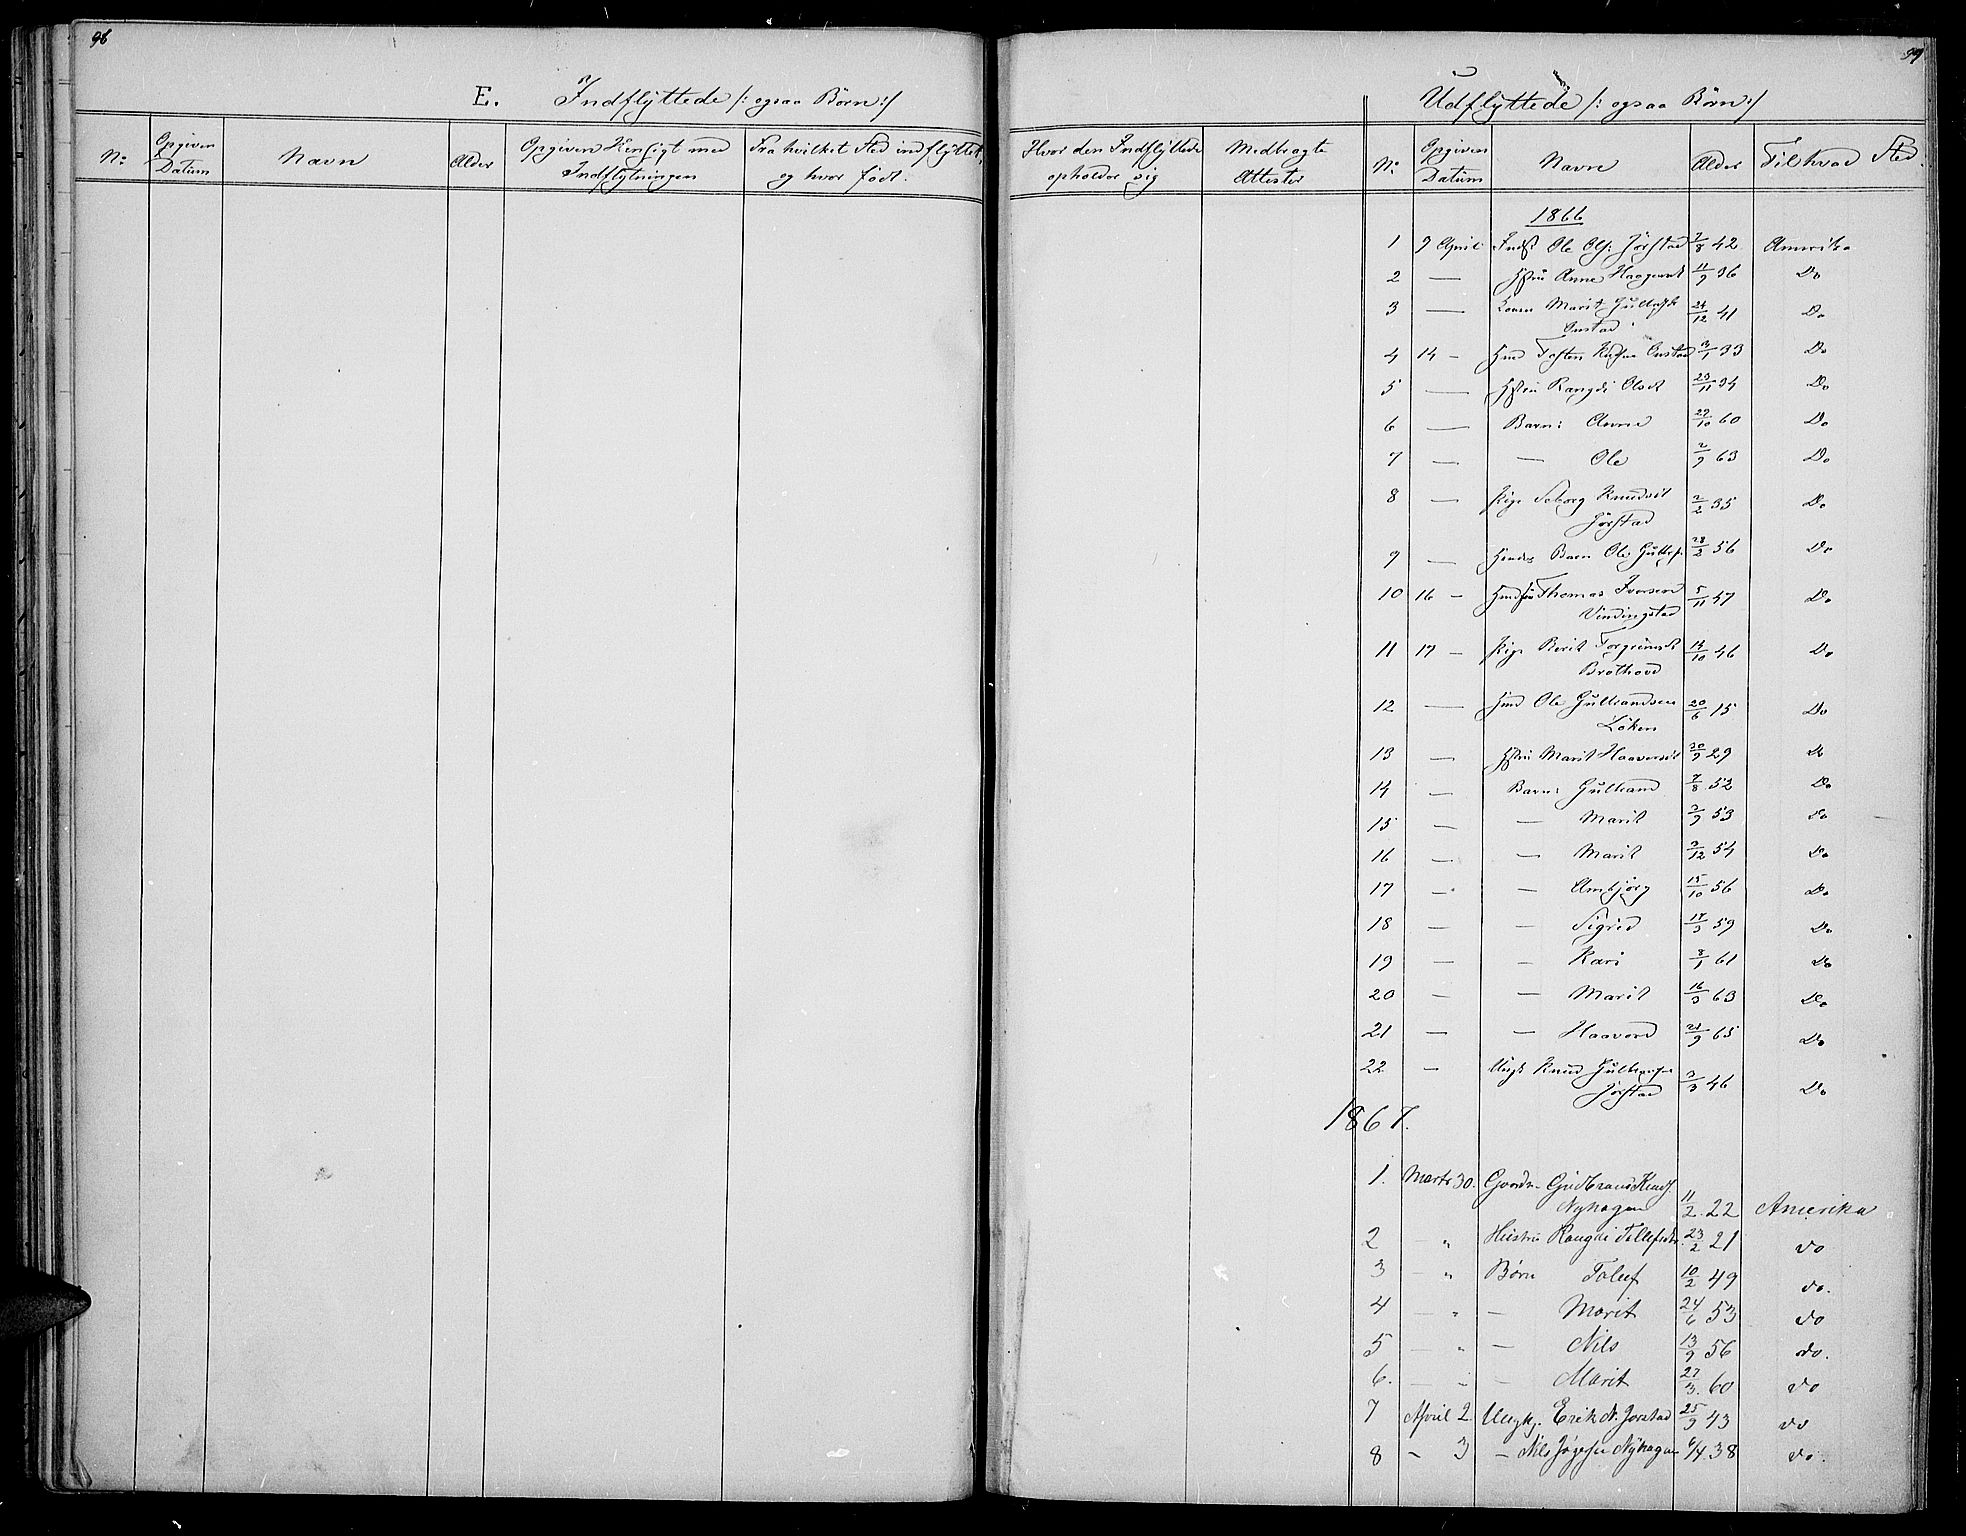 98
99
E. Indflyttede /: ogsaa Børn :/
Udflyttede /: ogsaa Børn :/
No Opgiven Datum Navn Alder Opgiven Hensigt med Indflytningen Fra hvilket Sted indflyttet, og hvor født.
Hvor den Indflyttede opholder sig Medbragte Attester No Opgiven Datum Navn Alder Til hvad Sted.
1866
1 9 April Inds: Ole Ols: Jørstad 7/8 42 Amerika
2 — Hstru Anne Haagensdt 11/9 36 Do
3 — Marit Gulbrsdt 24/12 41 Do
Onstad
4 14 - Gmd Tosten Onstad 3/1 33 Do
5 — Hstru Rangdi Olsdt 23/11 34 Do
6 — Barn: Anne 29/10 60 Do
7 — — Ole 2/9 63 Do
8 — Pige Seborg Knudsdt 2/2 35 Do
Jørstad
9 — Hendes Barn Ole Gulbrs. 28/2 56 Do
10 16 - Thomas Iversen 5/11 47 Do
Vindingstad
11 17 - Pige Berit Torgrimsdt 14/10 46 Do
Brathoved
12 — Gmd Ole Gulbrandsen 20/6 15 Do
Løken
13 — Hstru Marit Haavorsdt 30/9 29 Do
14 — Barn: Gulbrand 7/8 52 Do
15 — — Marit 2/9 53 Do
16 — — Marit 3/12 54 Do
17 — — Ambjørg 15/10 56 Do
18 — — Sigrid 17/3 59 Do
19 — — Kari 8/1 61 Do
20 — — Marit 16/3 63 Do
21 — — Haavord 21/9 65 Do
22 — Ungk Knud Gulbransen 3/3 46 Do
Jørstad
1867.
1. Marts 30. Gaardm. Gudbrand Knuds
Nyhagen 11/2 22 Amerika
2 — " Hustru Rangdi Tollefsdtr. 23/2 21 do
3 — " Børn Tolef 10/2 49 do.
4 — " — Marit 24/6 53 do
5 — " — Nils 13/9 56 do.
6. — " — Marit 27/3. 60 do
7 April 2. Ungkj. Erik N. Jørstad 25/9 43 do
8 - 3 — Nils Nyhagen 6/4 38 do.